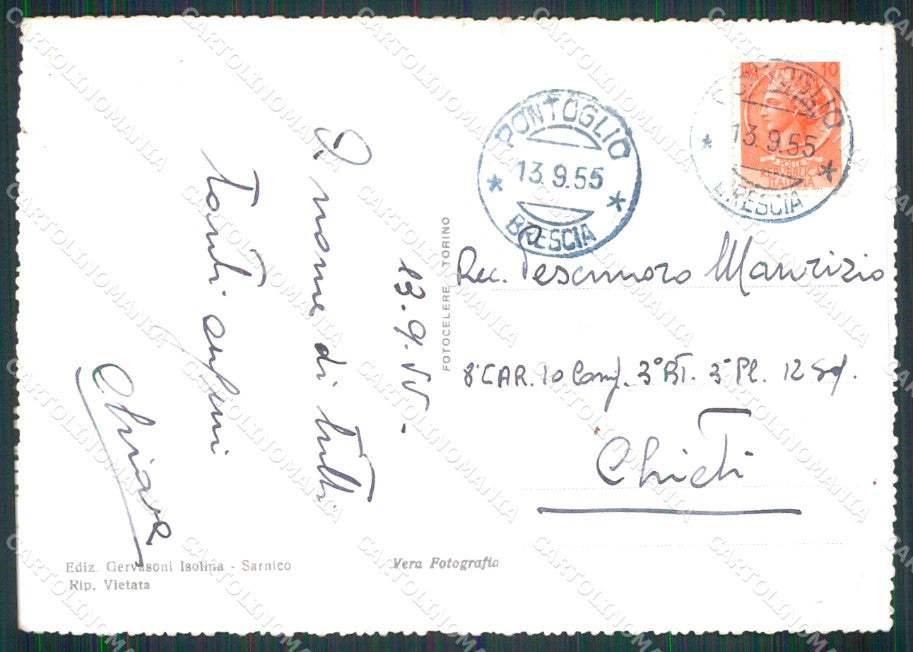 PONTOGLIO
13.9.55
BRESCIA
PONTOGLIO
13.9.55
BRESCIA
10
REPVBBLICA
ITALIANA
13.9.55-
A nome di tutti
Tanti auguri
Chiara
FOTOCELERE TORINO
Rec. Maurizio
8° CAR. 10 Comp. 3° BT. 3° Pl. 12 Sq.
Chieti
Ediz. Gervasoni Isolina - Sarnico
Rip. Vietata
Vera Fotografia
CARTOLINOMANIA